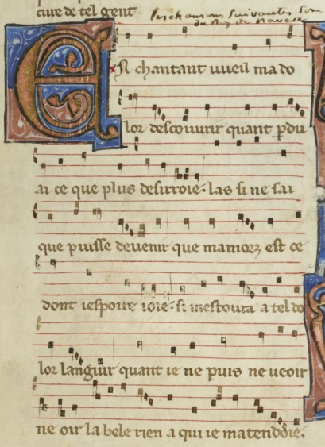 ciire de tel gent
Les chansons suivantes sont
du Roy de Navarre
En chantant vueil ma do
lor descouvrir quant perdu
ai ce que plus desirroie. las si ne sai
que puisse devenir que mamorz est ce
dont iespoir ioie. si mestoura a tel do
lor languir quant ie ne puis ne veoir
ne oir la bele rien a qui ie matendoie.